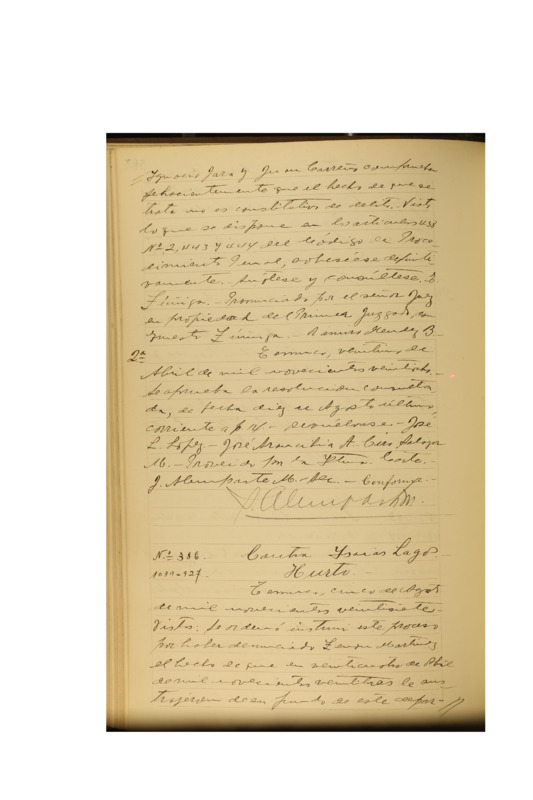 Ignacio Jara y Juan Carreño comprueba
fehacientemente que el hecho de que se
trata no es constitutivo de delito. Visto
lo que se dispone en los artículos 438
Nº 2, 443 y 444 del Código de Proce-
dimiento Penal, sobreséese definiti
vamente. Anótese y consúltese. E.
Zúñiga. - Pronunciado por el señor Juez
en propiedad del Primer Juzgado, don
Ernesto Zúñiga. Ramiro Mendez B.
2ª Temuco, veintiuno de
Abril de mil novecientos veintiocho.
Se aprueba la resolución consulta-
da, de fecha diez de Agosto último,
corriente a f. 14. - Devuélvase. - José
L. Lopez - José Arancibia A. Salazar
M. - Proveido por la Iltma. Corte. -
J. Alemparte M. - Sec. - Conforme. -
J. Alemparte M.
N.º 386. Contra Ysaias Lagos.
Hurto. -
Temuco, cinco de Agosto
de mil novecientos veintisiete.
Vistos: Se ordenó instruir este proceso
por haber denunciado Martinez
el hecho de que en veinticuatro de Abril
de mil novecientos veintitres le sus
trajeron de su fundo de este depar-//